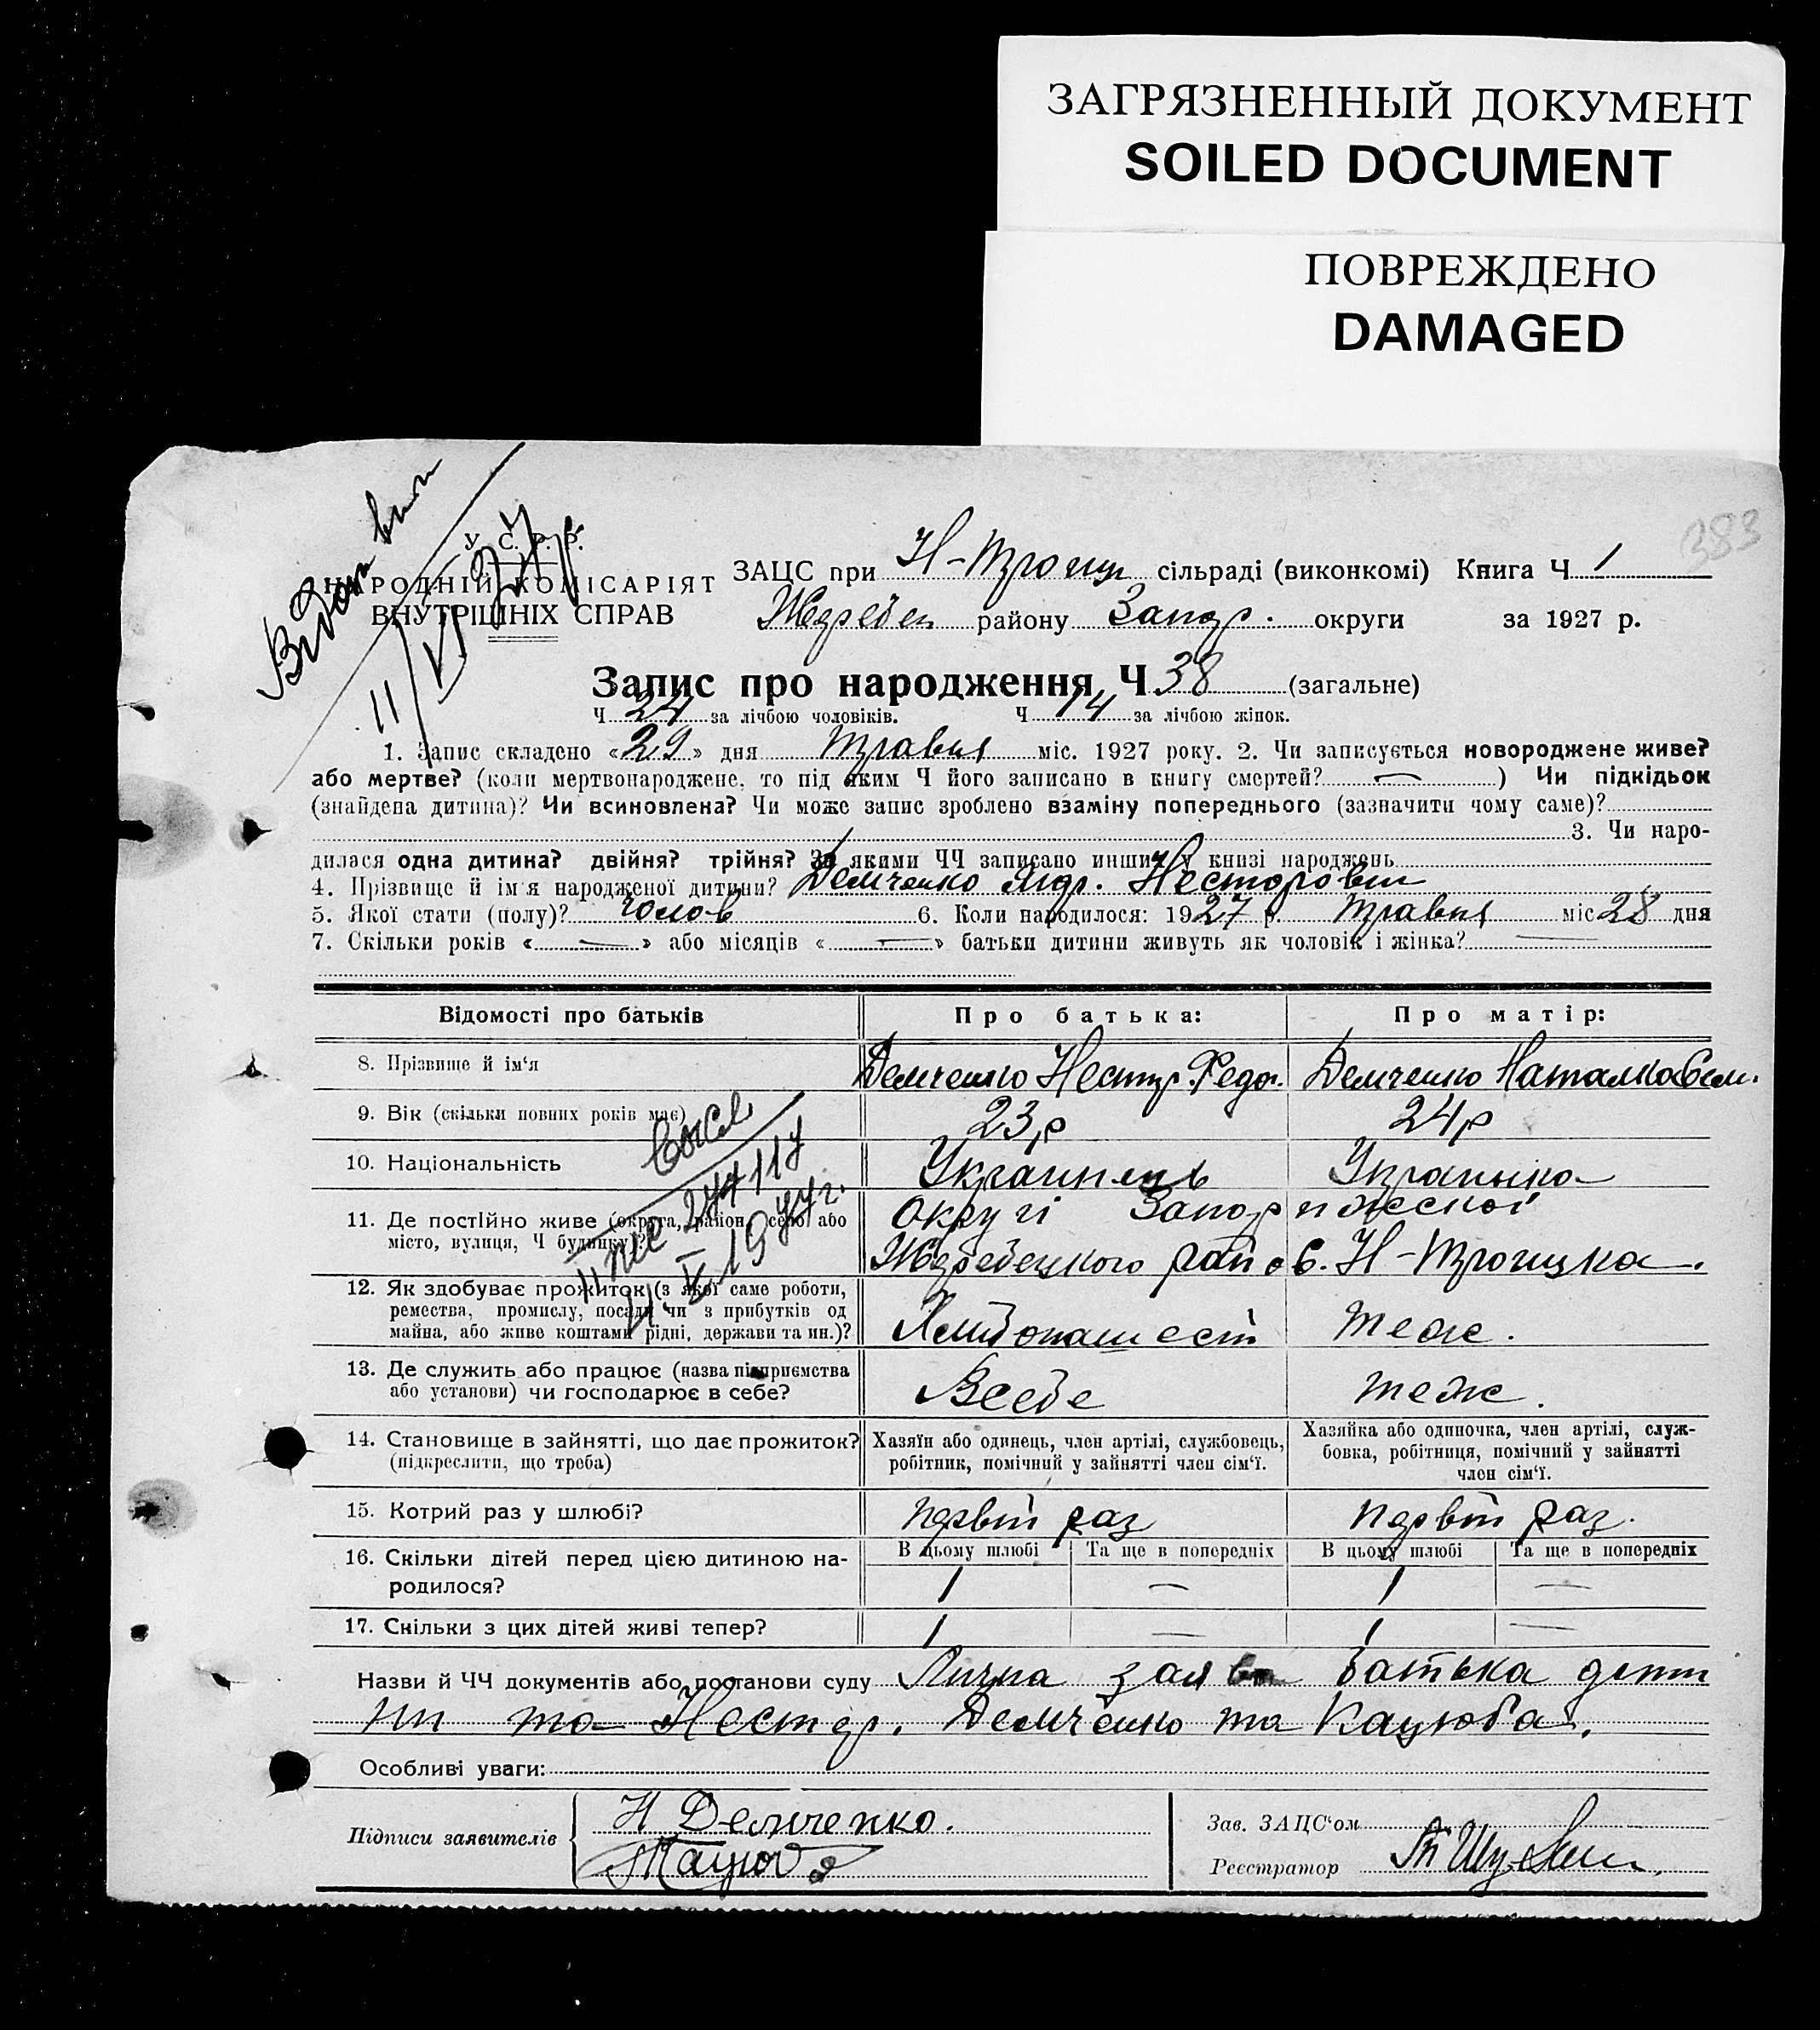 ЗАГРЯЗНЕННЫЙ ДОКУМЕНТ
SOILED DOCUMENT
ПОВРЕЖДЕНО
DAMAGED
383
У. С. Р. Р.
НАРОДНІЙ КОМІСАРІЯТ
ВНУТРІШНІХ СПРАВ
ЗАЦС при Н-Троиц сільраді (виконкомі) Книга Ч 1
Жеребец району Запор. округи за 1927 р.
Запис про народження Ч 38 (загальне)
Ч 24 за лічбою чоловіків. Ч 14 за лічбою жінок.
1. Запис складено «29» дня травня міс. 1927 року. 2. Чи записується новороджене живе?
або мертве? (коли мертвонароджене, то під яким Ч його записано в книгу смертей? —) Чи підкідьок
(знайдена дитина)? Чи всиновлена? Чи може запис зроблено взаміну попереднього (зазначити чому саме)?
3. Чи наро-
дилася одна дитина? двійня? трійня? За якими ЧЧ записано инших у книзі народжень
4. Прізвище й ім'я народженої дитини? Демченко Несторовт
5. Якої стати (полу)? чолов 6. Коли народилося: 1927 р. травня міс 28 дня
7. Скільки років «—» або місяців «—» батьки дитини живуть як чоловік і жінка? —
Відомості про батьків Про батька: Про матір:
8. Прізвище й ім'я Демченко Нестор. Федор. Демченко Наталка Сем.
9. Вік (скільки повних років має) 23 р 24 р
10. Національність Украинець Украинка
11. Де постійно живе (округа, район, село або місто, вулиця, Ч будинку)? округі Запоріжської
Жеребецкого рай с. Н-Троицка.
12. Як здобуває прожиток (з якої саме роботи,
ремества, промислу, посади чи з прибутків од
майна, або живе коштами рідні, держави та ин.)? Хлибопашест теж.
13. Де служить або працює (назва підприємства
або установи) чи господарює в себе? Всебе теж.
14. Становище в зайнятті, що дає прожиток?
(підкреслити, що треба)
Хазяїн або одинець, член артілі, службовець,
робітник, помічний у зайнятті член сім'ї.
Хазяйка або одиночка, член артілі, служ-
бовка, робітниця, помічний у зайнятті
член сім'ї.
15. Котрий раз у шлюбі? первій раз первій раз.
16. Скільки дітей перед цією дитиною на-
родилося?
В цьому шлюбі Та ще в попередніх В цьому шлюбі Та ще в попередніх
1 — 1 —
17. Скільки з цих дітей живі тепер? 1 — 1 —
Назви й ЧЧ документів або постанови суду Лична заява батька дети
ни та Нестор. Демченко та Кацюба.
Особливі уваги:
Підписи заявителів Н Демченко.
Кацюба
Зав. ЗАЦС'ом
Реєстратор